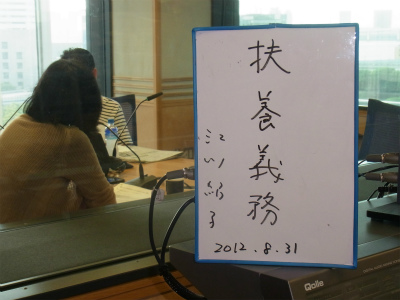 扶養義務
江川紹子
2012.8.31
Qolle